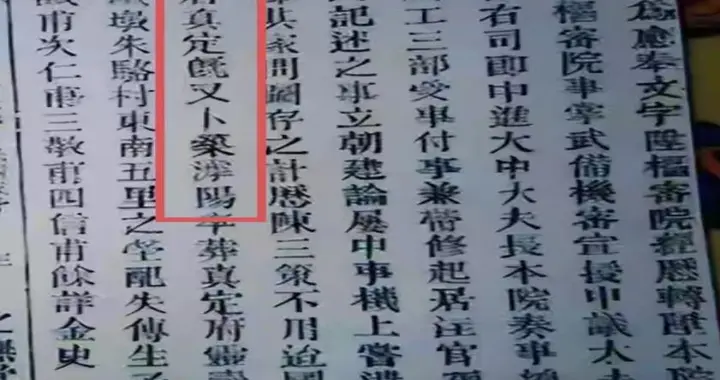 爲應奉文字陞樞審院經歷轉陞本院
樞審院事掌武備機審宣授中議大夫
右司郎中進大中大夫長本院奏事
工三部受事付事兼帶修起居注官
記述之事立朝建論屢中事機上嘗
其家問圖存之計歷陳三策不用迨
眞定旣又卜築滹陽卒葬眞定府靈壽
墳朱駱村東南五里之塋配失傳生子
甫次仁甫三敬甫四信甫餘詳金史